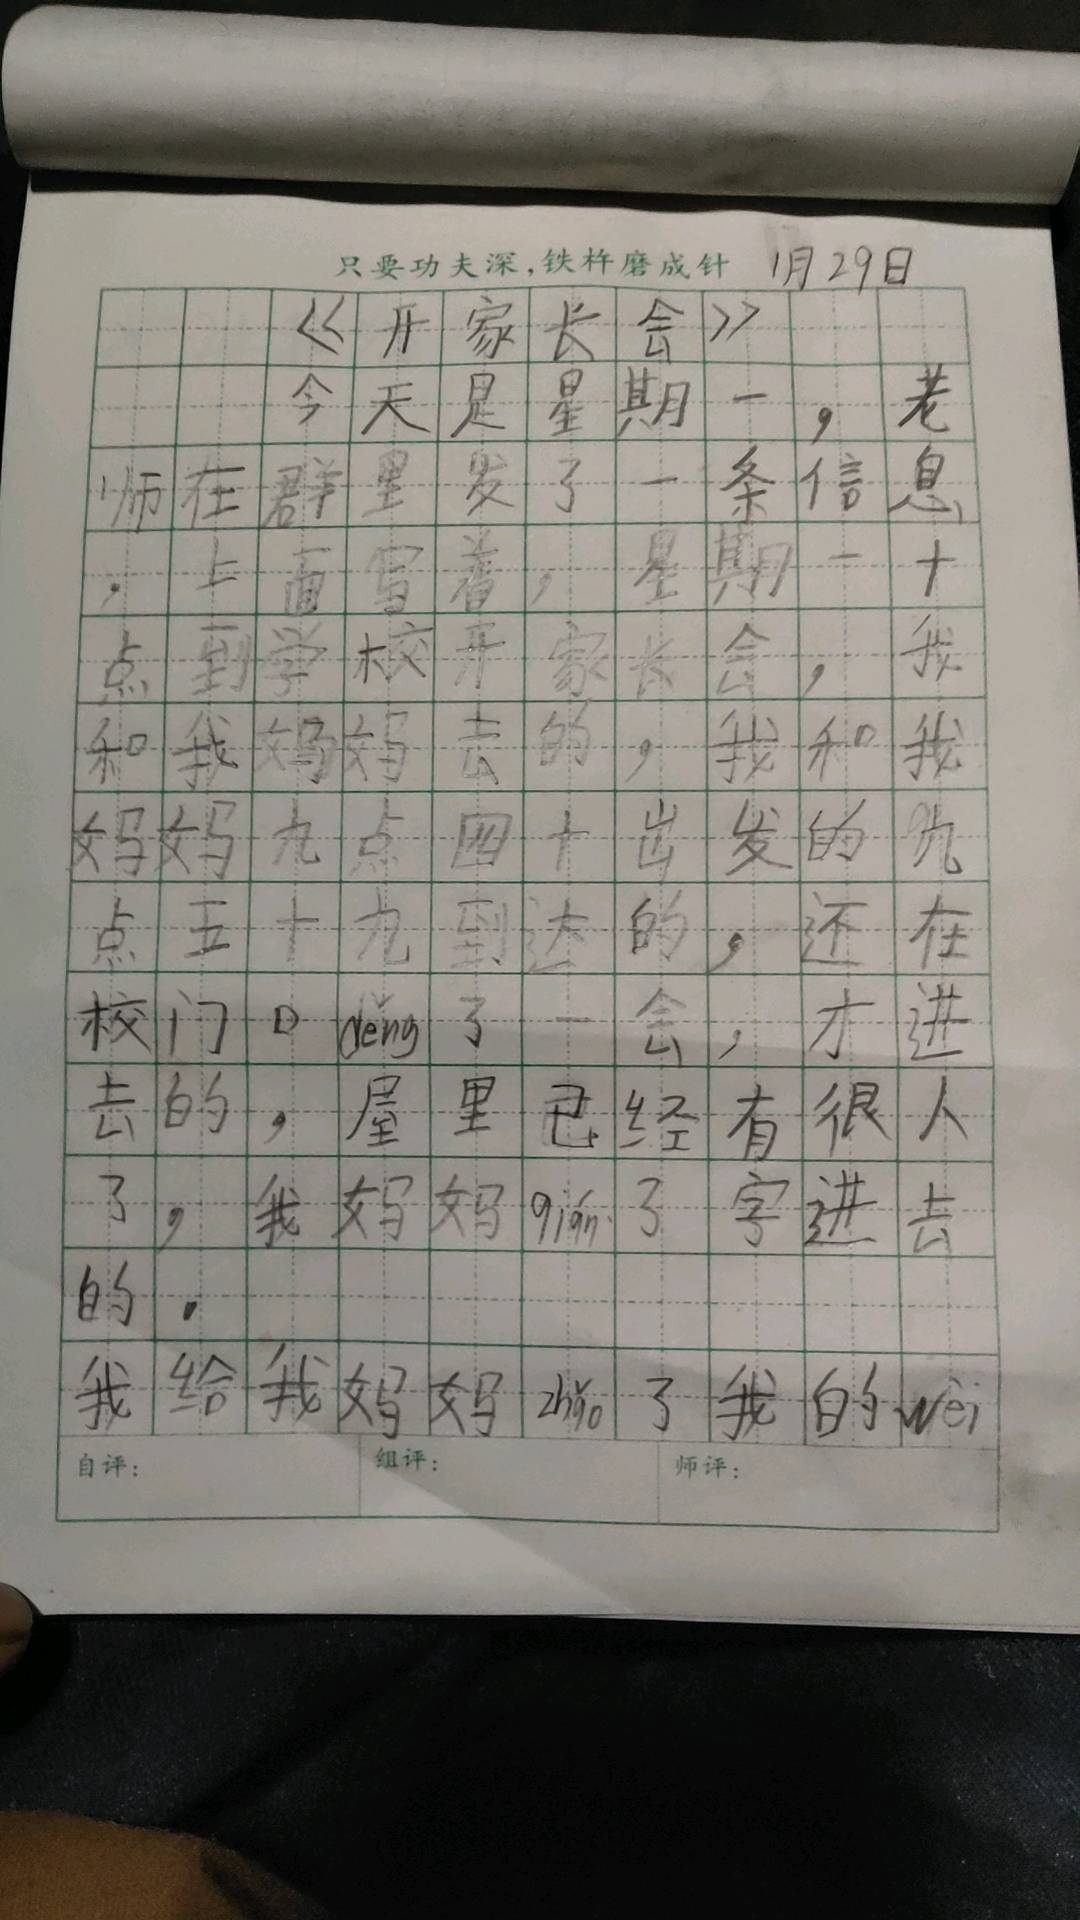 只要功夫深，铁杵磨成针 1月29日
《开家长会》
今天是星期一，老
师在群里发了一条信息
，上面写着，星期一十
点到学校开家长会，我
和我妈妈去的，我和我
妈妈九点四十出发的九
点五十九到达的，还在
校门口děng了一会，才进
去的，屋里已经有很人
了，我妈妈qián了字进去
的.
我给我妈妈zhǎo了我的wèi
自评：
组评：
师评：